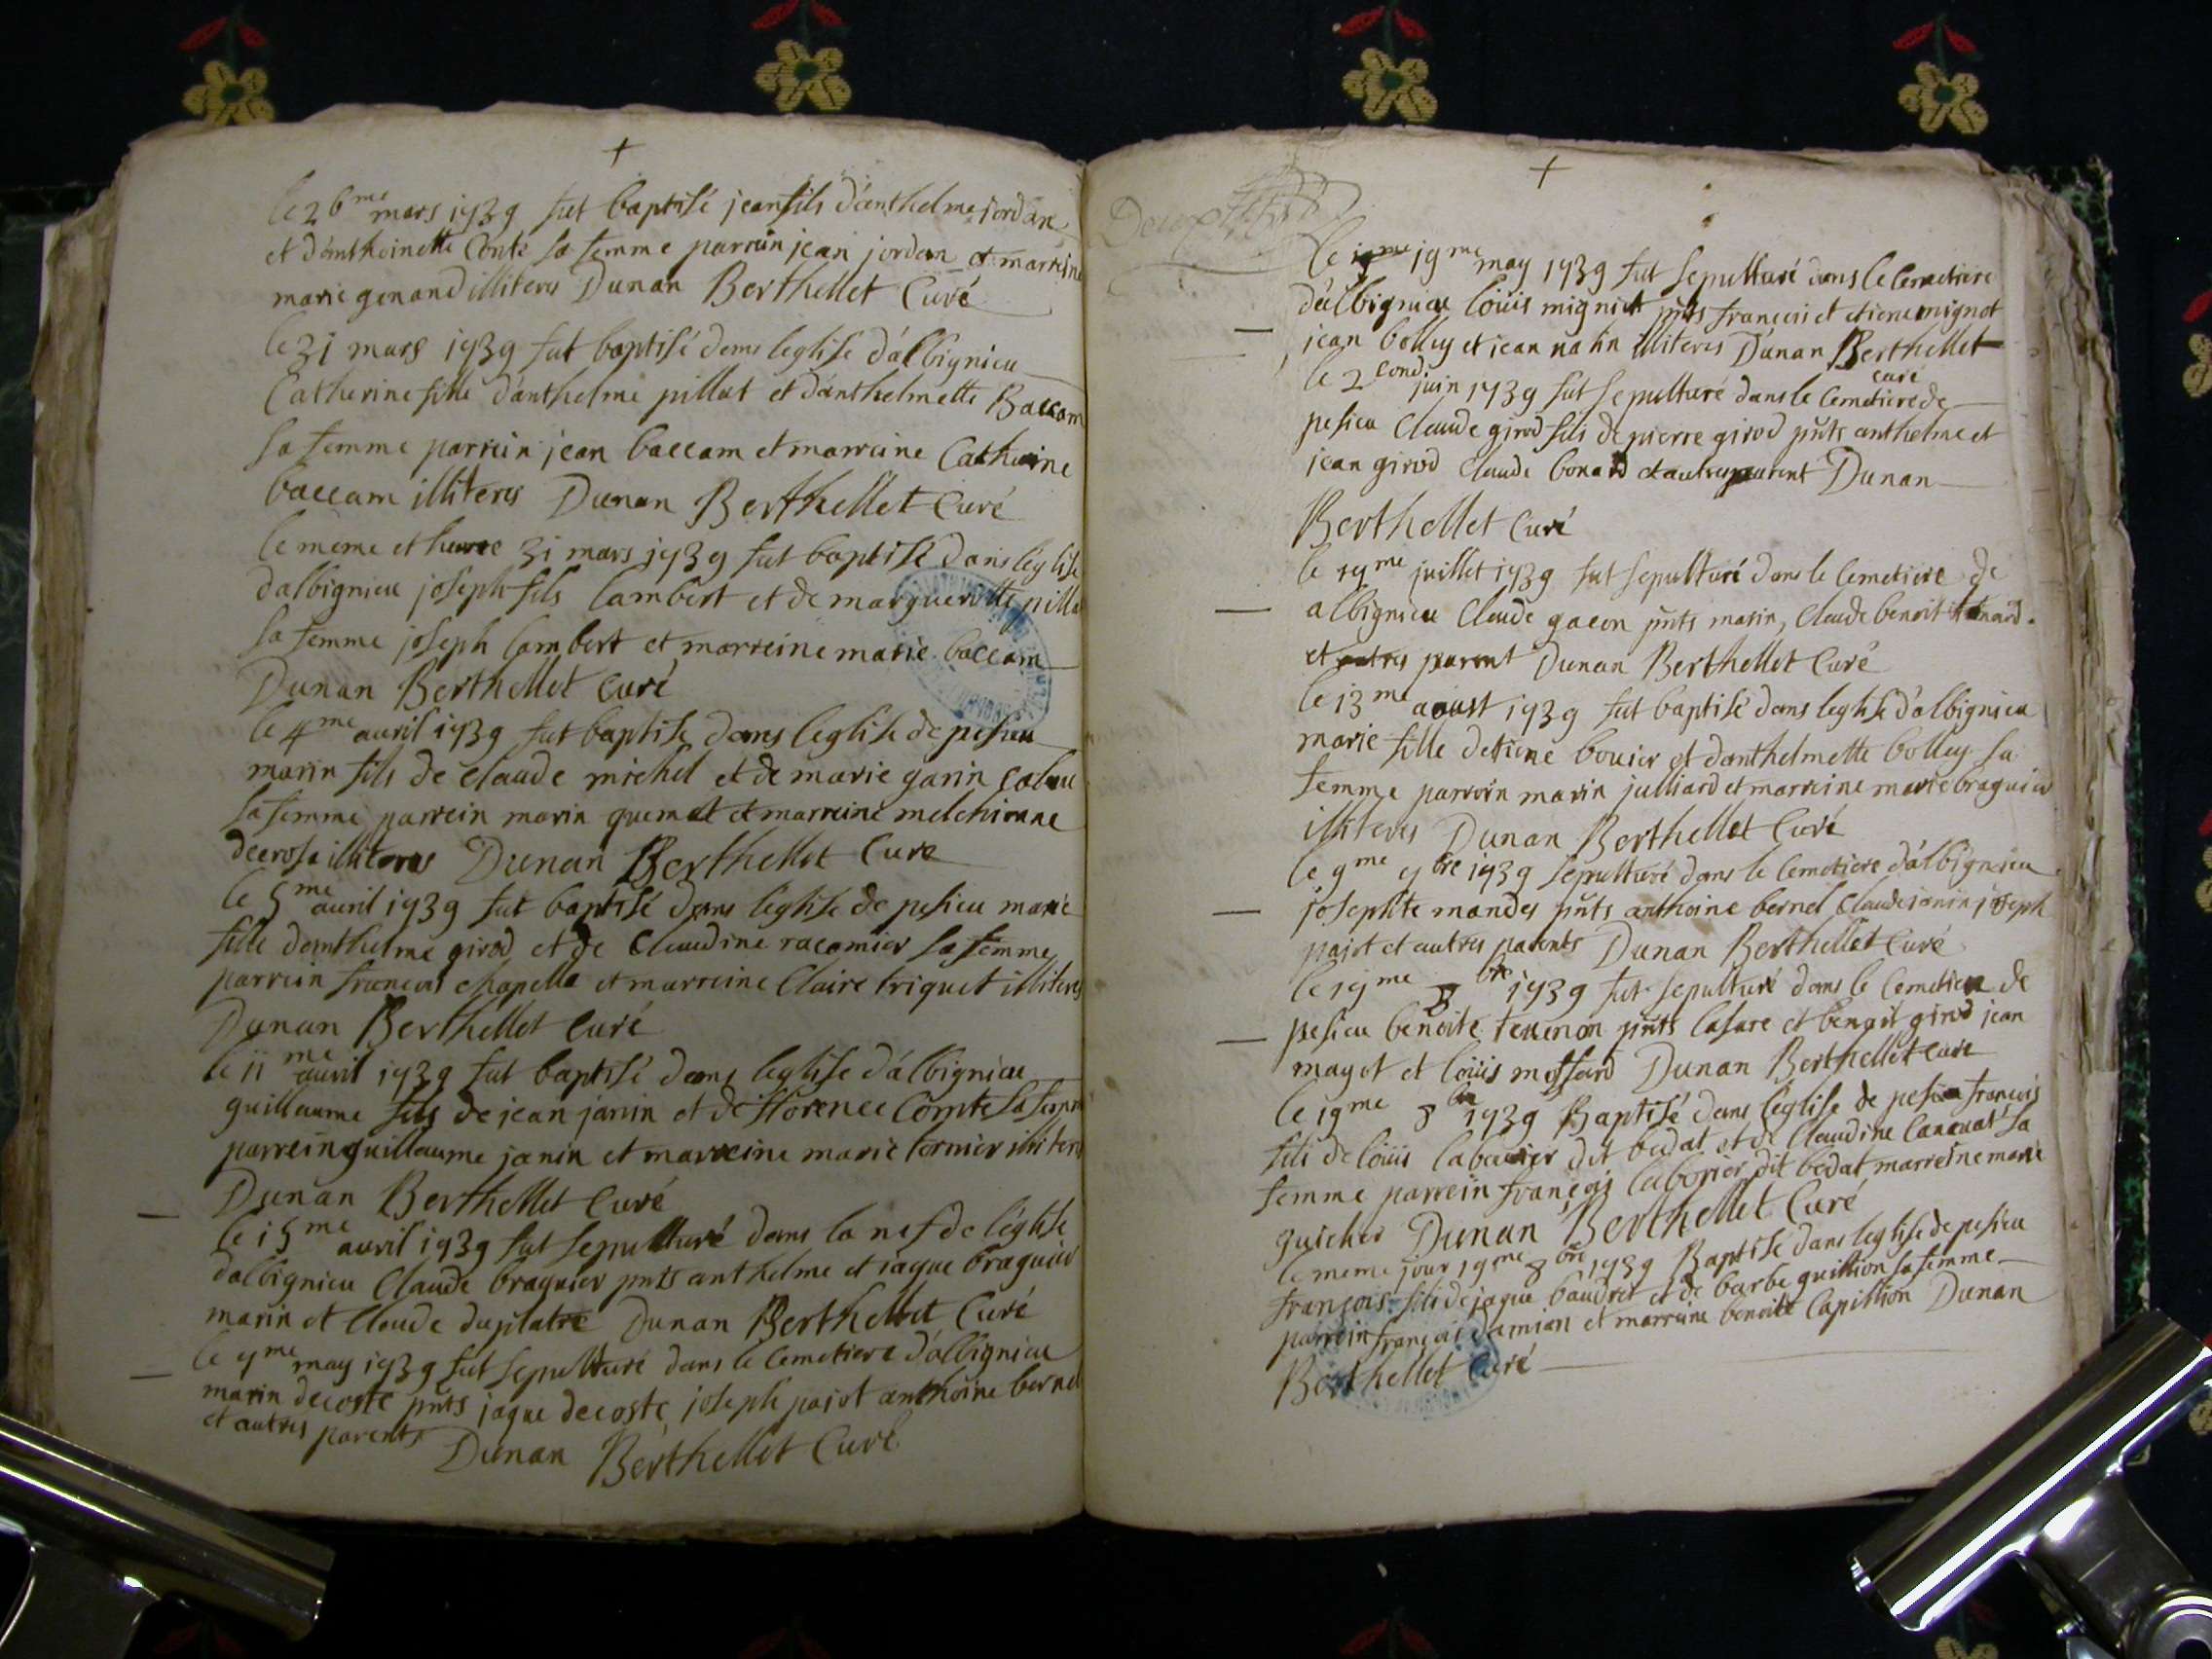 +
le 26me mars 1739 fut baptisé jean fils d'anthelme jordan
et d'anthoinette Conte sa femme parrein jean jordan et marreine
marie genand illiteres Dunan Berthellet Curé
le 31 mars 1739 fut baptisé dans leglise d'albignieu
Catherine fille d'anthelme pillat et d'anthelmette Baccam
sa femme parrein jean baccam et marreine Catherine
baccam illiteres Dunan Berthellet Curé
le meme et heure 31 mars 1739 fut baptisé dans léglise
dalbignieu joseph fils lambert et de margueritte pilla
sa femme joseph lambert et marreine marie baccam
Dunan Berthellet Curé
le 4me avril 1739 fut baptise dans leglise de pesieu
marin fils de claude michel et de marie garin
sa femme parrein marin quemat et marreine melchionne
decrose illiteres Dunan Berthellet Cure
le 5me avril 1739 fut baptisé dans léglise de pesieu marie
fille danthelme girod et de Claudine racomier sa femme
parrein francois chapelle et marreine Claire triquet illiteres
Dunan Berthellet Curé
le 11me avril 1739 fut baptisé dans leglise d'albignieu
guillaume fils de jean janin et de florence Comte sa femme
parrein guillaume janin et marreine marie tornier illiteres
Dunan Berthellet Curé
le 15me avril 1739 fut sepulturé dans la nef de léglise
dalbignieu Claude braguier pnts anthelme et jaque braguier
marin et Claude duplatre Dunan Berthellet Curé
le 7me may 1739 fut sepulturé dans le Cemetiere d'albignieu
marin decoste pnts jaque decoste joseph pajot anthoine bernel
et autres parents Dunan Berthellet Curé
+
le 19me may 1739 fut sepulturé dans le Cemetiere
d'albignieu loüis mignot pnts francois et etiene mignot
jean bolley et jean illiteres Dunan Berthellet
curé
le 2cond juin 1739 fut sepulturé dans le Cemetiere de
pesieu Claude girod fils de pierre girod pnts anthelme et
jean girod Claude bonard et autres parent Dunan
Berthellet Curé
le 17me juillet 1739 fut sepulturé dans le Cemetiere de
albignieu Claude gacon pnts marin, Claude benoit
et autres parent Dunan Berthellet Curé
le 13me aoust 1739 fut baptisé dans leglise d'albignieu
marie fille detiene bouier et d'anthelmette bolley sa
femme parrein marin julliard et marreine marie braguier
illiteres Dunan Berthellet Curé
le 9me 7bre 1739 sepulturé dans le Cemetiere d'albignieu
josephte mandes pnts anthoine bernel Claude janin joseph
pajot et autres parents Dunan Berthellet Curé
le 17me 8bre 1739 fut sepulturé dans le Cemetiere de
pesieu benoite pnts lasare et benoit girod jean
mayot et loüis Dunan Berthellet Cure
le 19me 8bre 1739 Baptisé dans léglise de pesieu francois
fils de loüis dit bedat et de Claudine sa
femme parrein françois dit bedat marreine marie
guicher Dunan Berthellet Curé
le meme jour 19me 8bre 1739 Baptisé dans leglise de pesieu
françois fils de jaque baudret et de barbe guillion sa femme
parrein françois damian et marreine benoite Capillion Dunan
Berthellet Curé